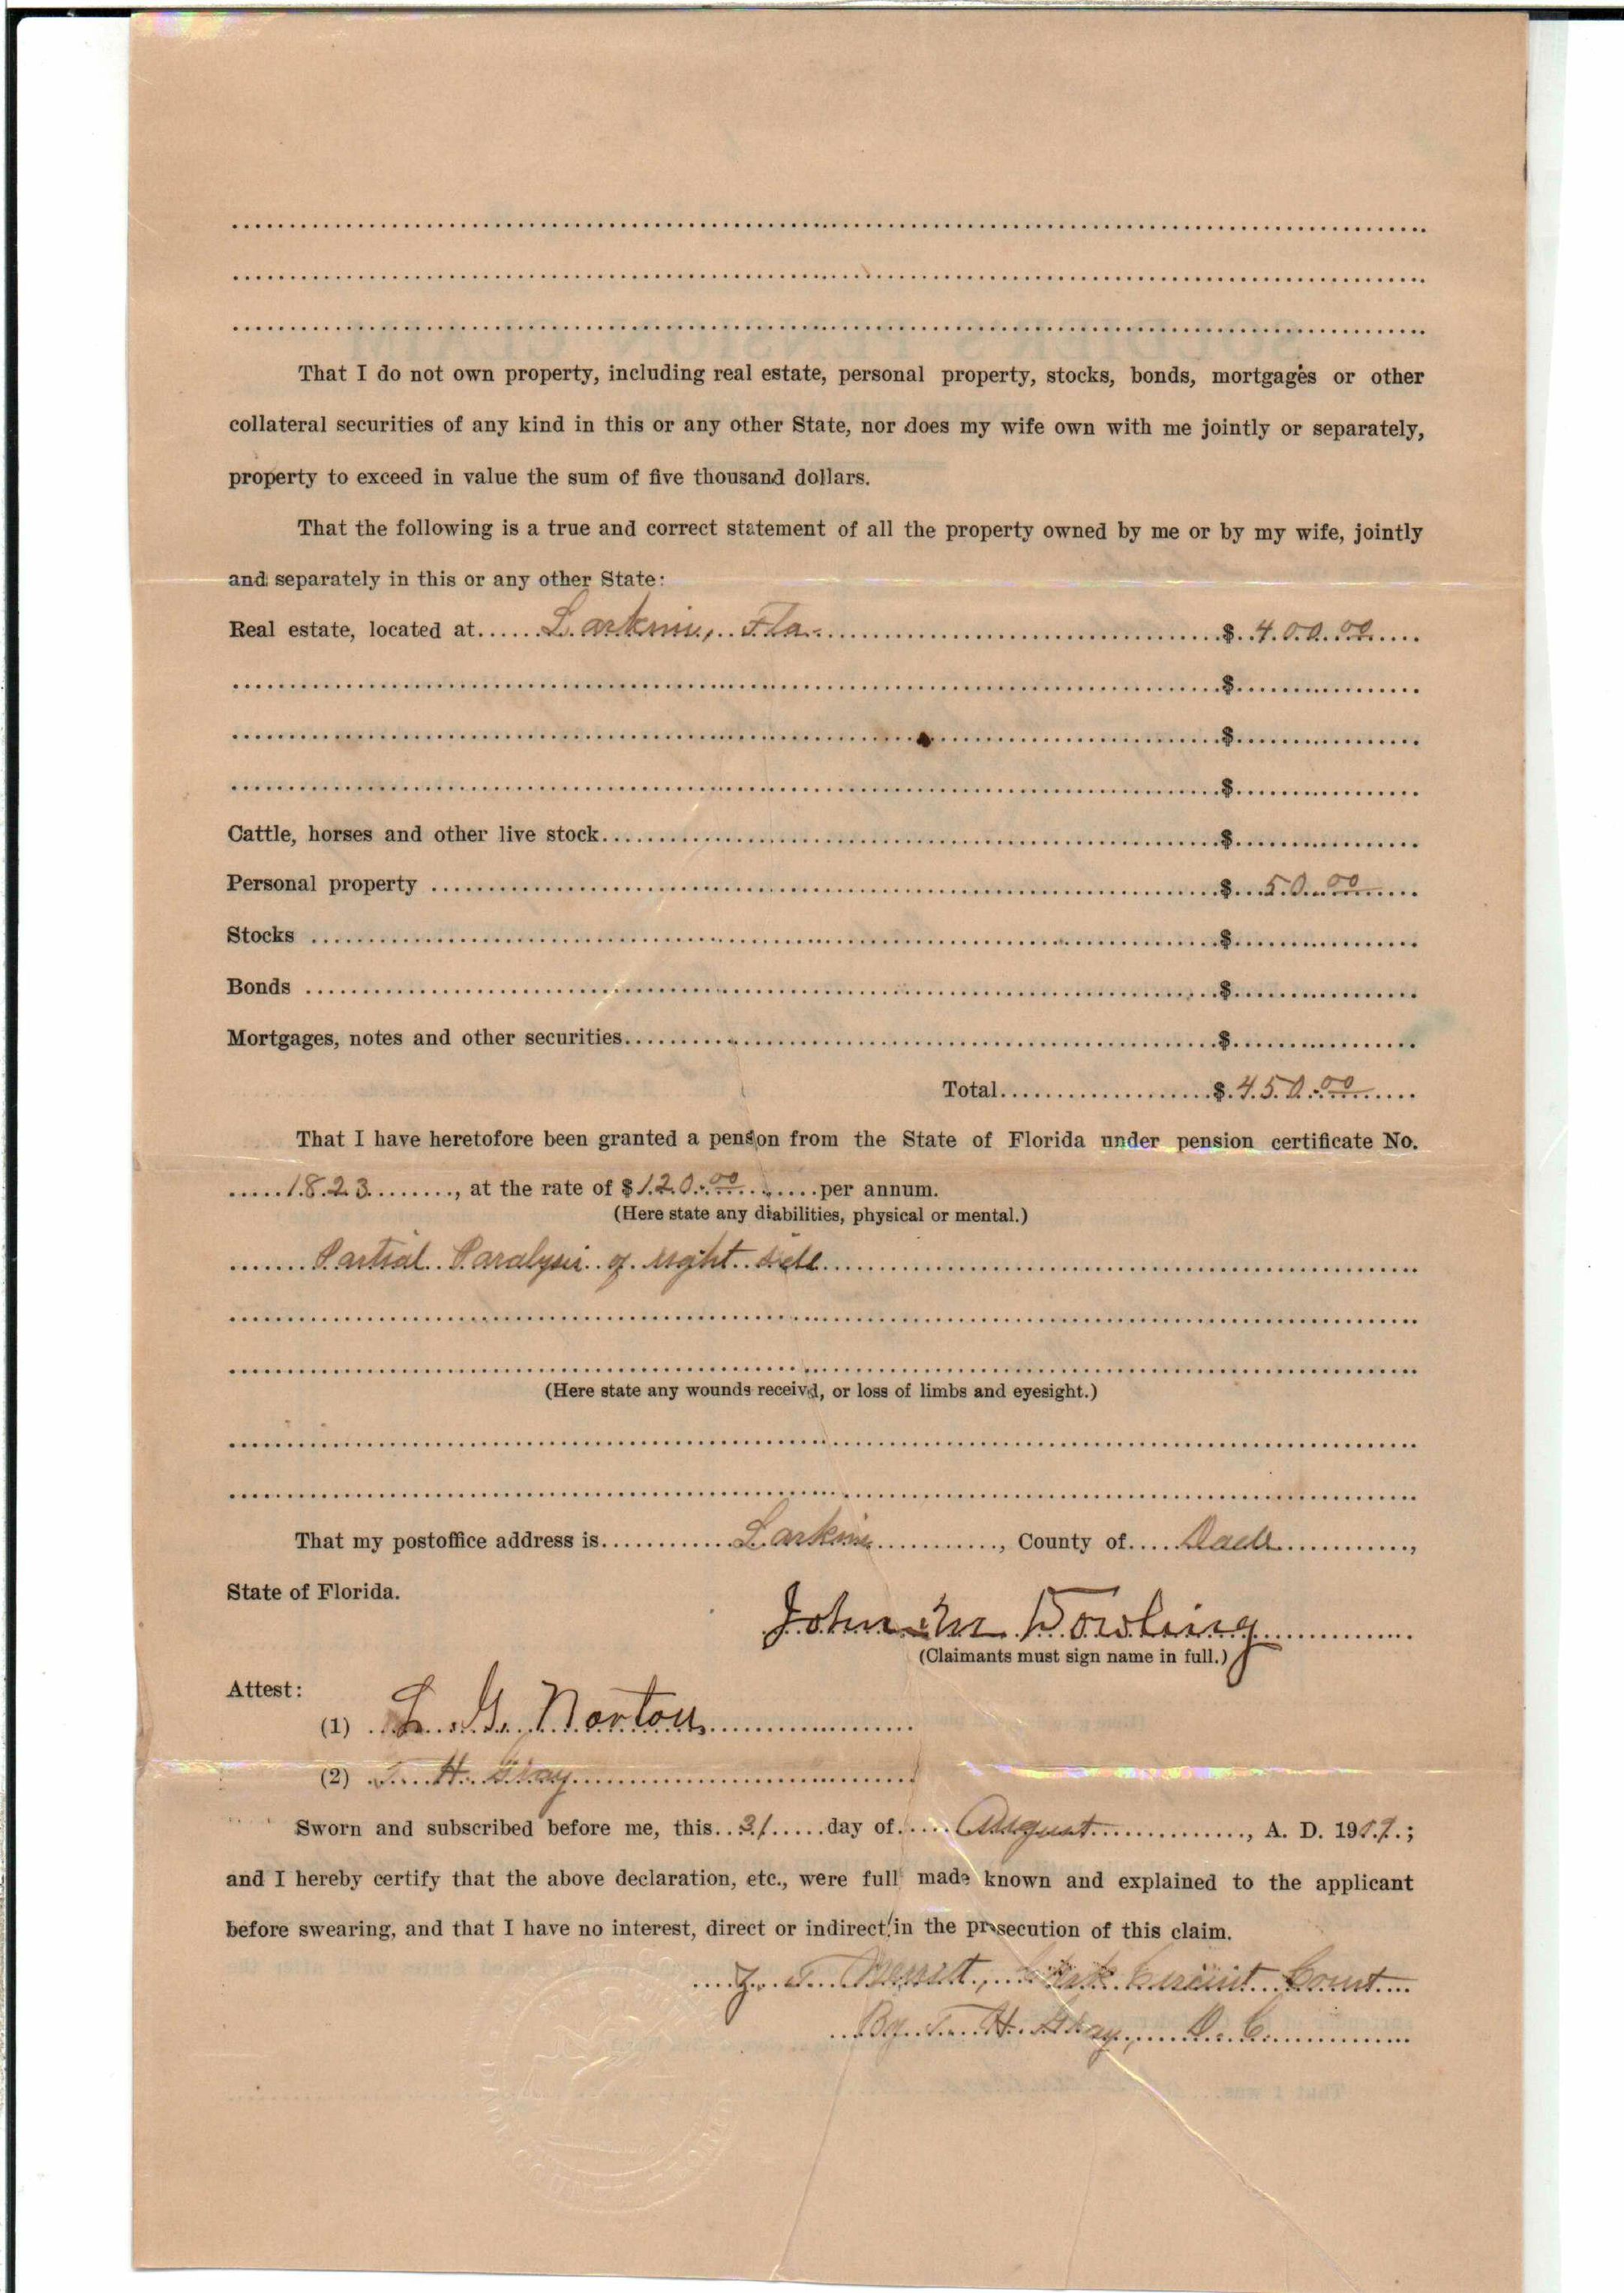 That I do not own property, including real estate, personal property, stocks, bonds, mortgages or other
collateral securities of any kind in this or any other State, nor does my wife own with me jointly or separately,
property to exceed in value the sum of five thousand dollars.
That the following is a true and correct statement of all the property owned by me or by my wife, jointly
and separately in this or any other State:
Real estate, located at Larkins, Fla. $ 400.00
$
$
$
Cattle, horses and other live stock $
Personal property $ 50.00
Stocks $
Bonds $
Mortgages, notes and other securities $
Total $ 450.00
That I have heretofore been granted a pension from the State of Florida under pension certificate No.
1823, at the rate of $120.00 per annum.
(Here state any diabilities, physical or mental.)
Partial Paralysis of right side
(Here state any wounds receivd, or loss of limbs and eyesight.)
That my postoffice address is Larkins, County of Dade,
State of Florida.
John M Dowling
(Claimants must sign name in full.)
Attest:
(1) L. G. Norton
(2) T. H. Gray
Sworn and subscribed before me, this 31 day of August, A. D. 190;
and I hereby certify that the above declaration, etc., were full made known and explained to the applicant
before swearing, and that I have no interest, direct or indirect in the prosecution of this claim.
Z. T. Merritt, Clerk Circuit Court
By T. H. Gray, D. C.